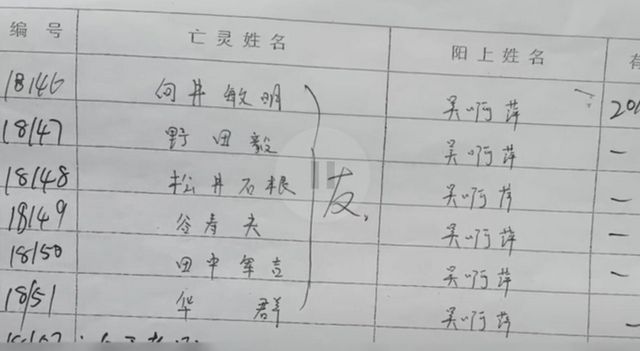 编号 亡灵姓名 阳上姓名 有
18146 向井敏明 吴啊萍 201
18147 野田毅 吴啊萍 一
18148 松井石根 友, 吴啊萍 一
18149 谷寿夫 吴啊萍 一
18150 田中军吉 吴啊萍 一
18151 华群 吴啊萍 一